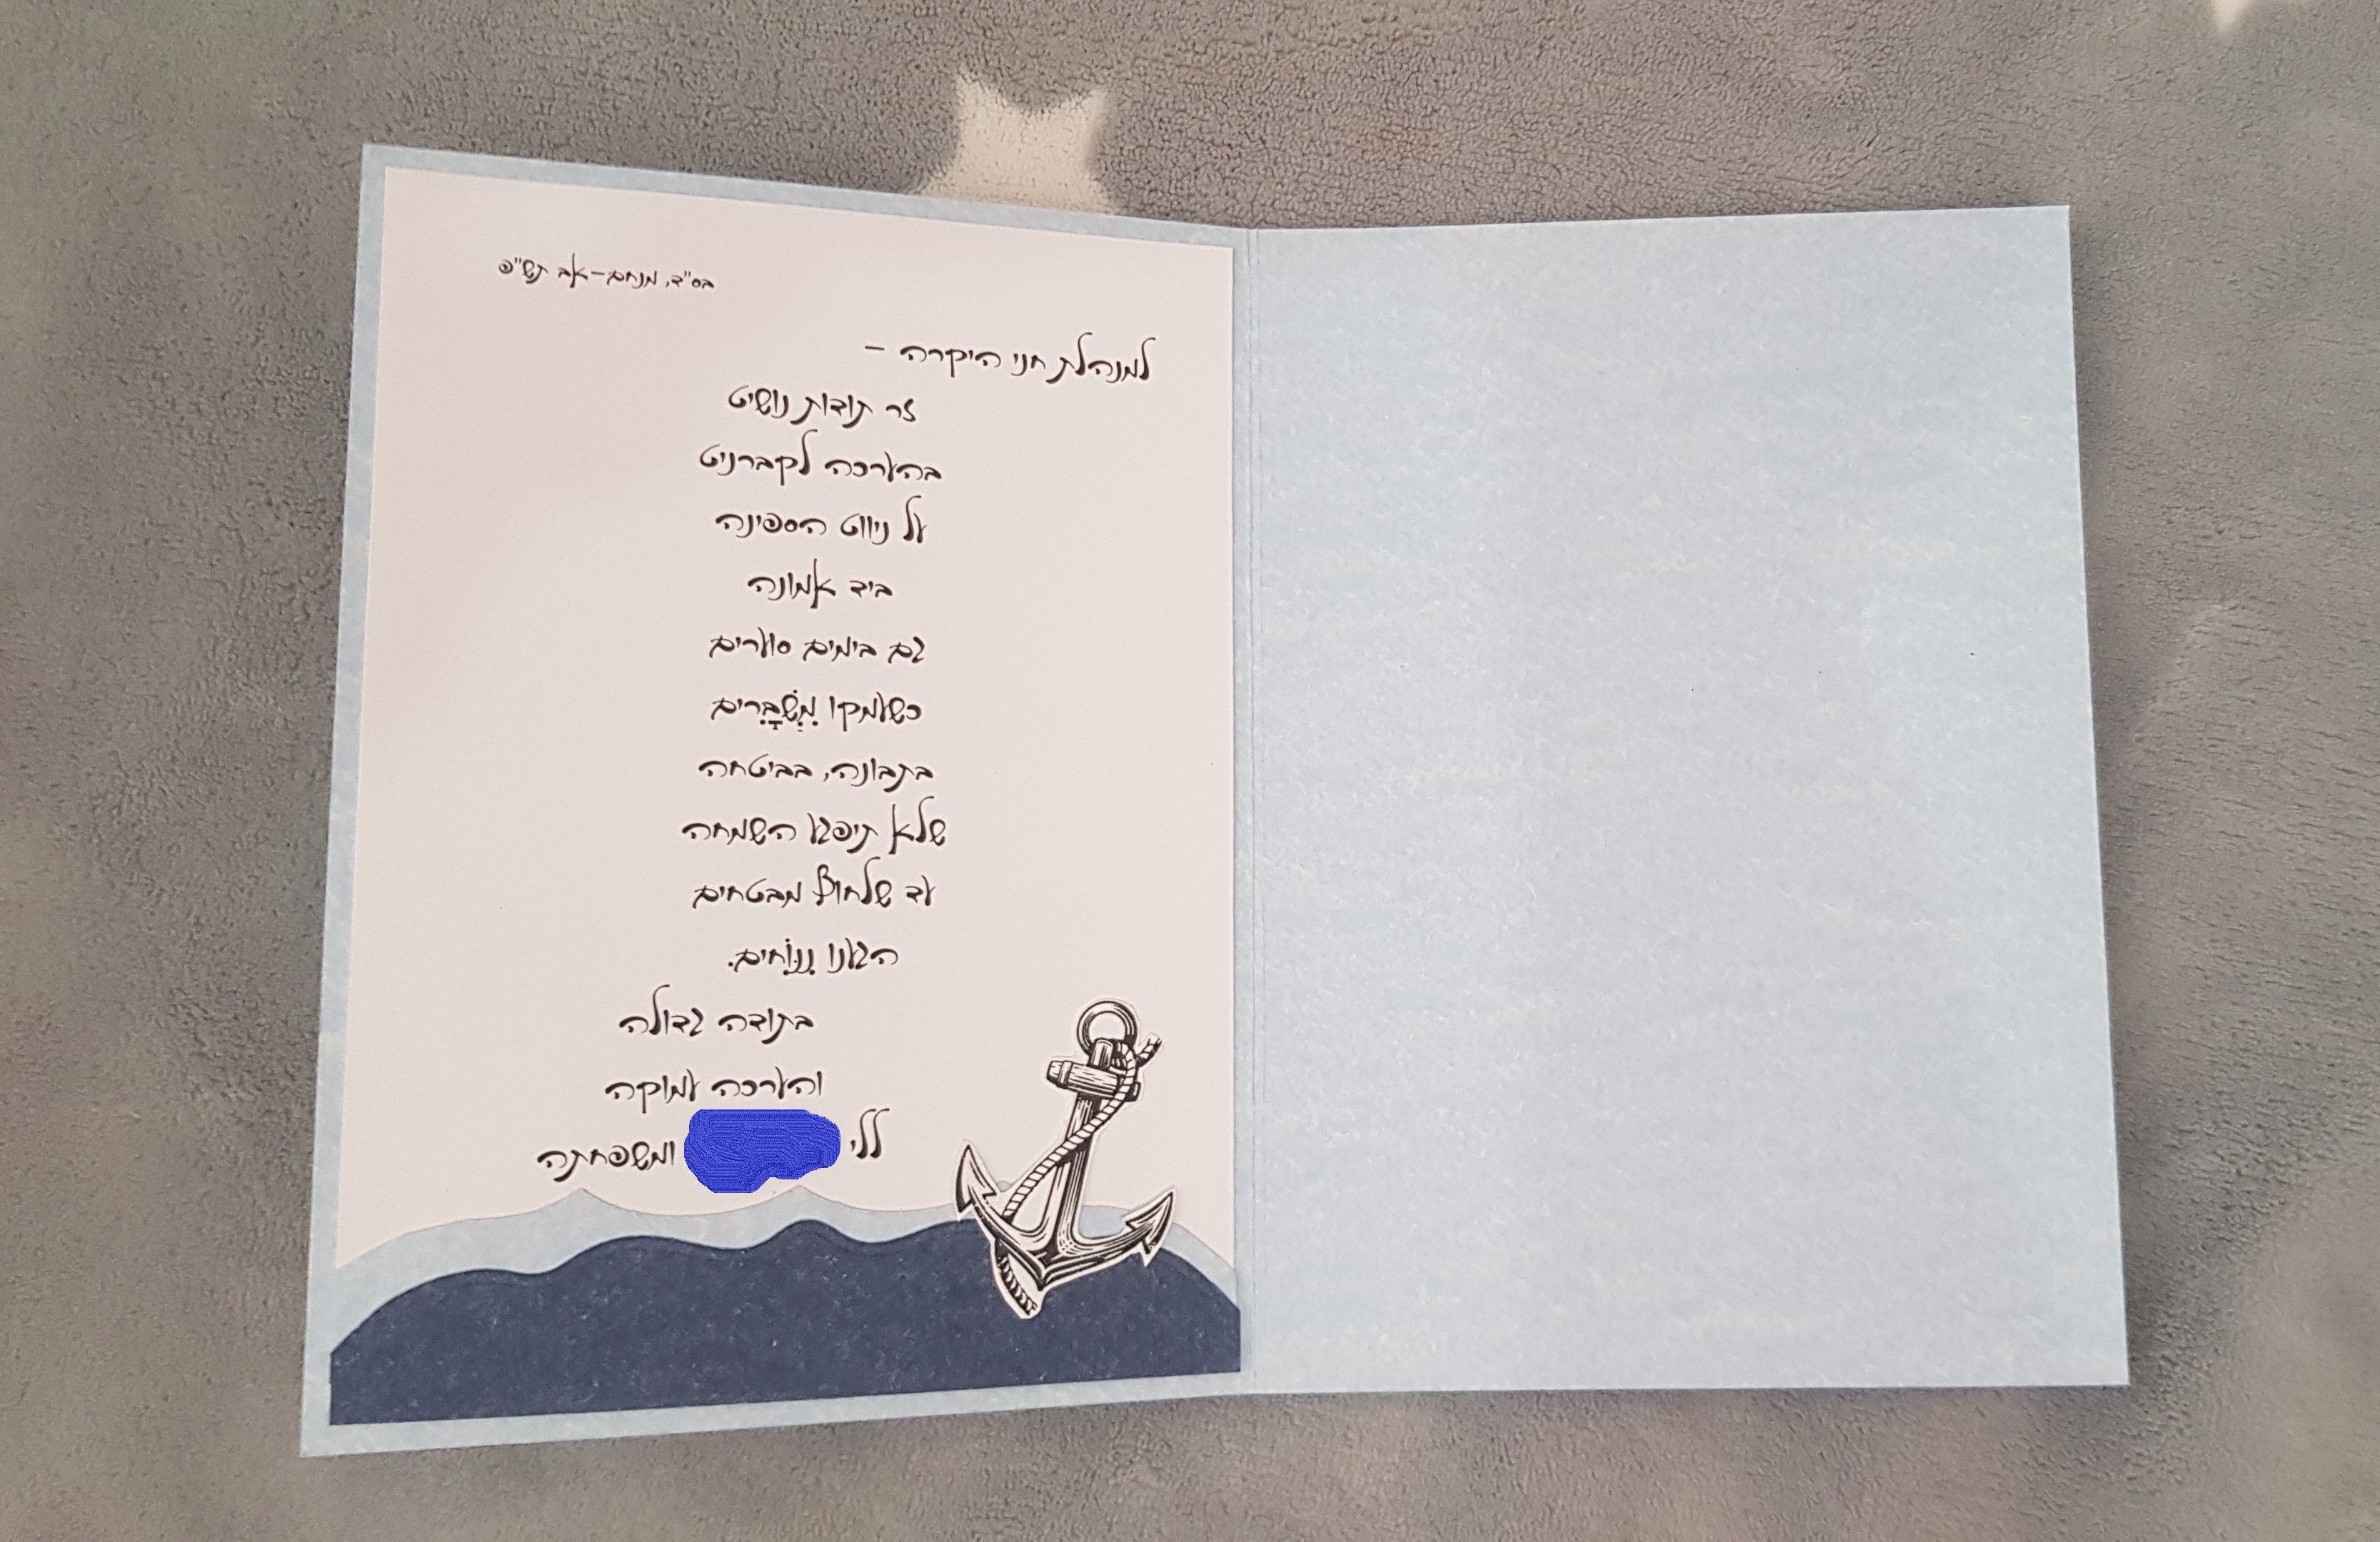 בס"ד, מנחם-אב תש"פ
למנהלת חני היקרה –
זר תודות נושיט
בהערכה לקברניט
על ניווט הספינה
ביד אמונה
גם בימים סוערים
כשעמקו מִשְׁבָּרִים
בתבונה, בביטחה
שלא תיפגע השמחה
עד שלחוף מבטחים
הגענו נִנּוֹחִים.
בתודה גדולה
והערכה עמוקה
ללי ומשפחתה